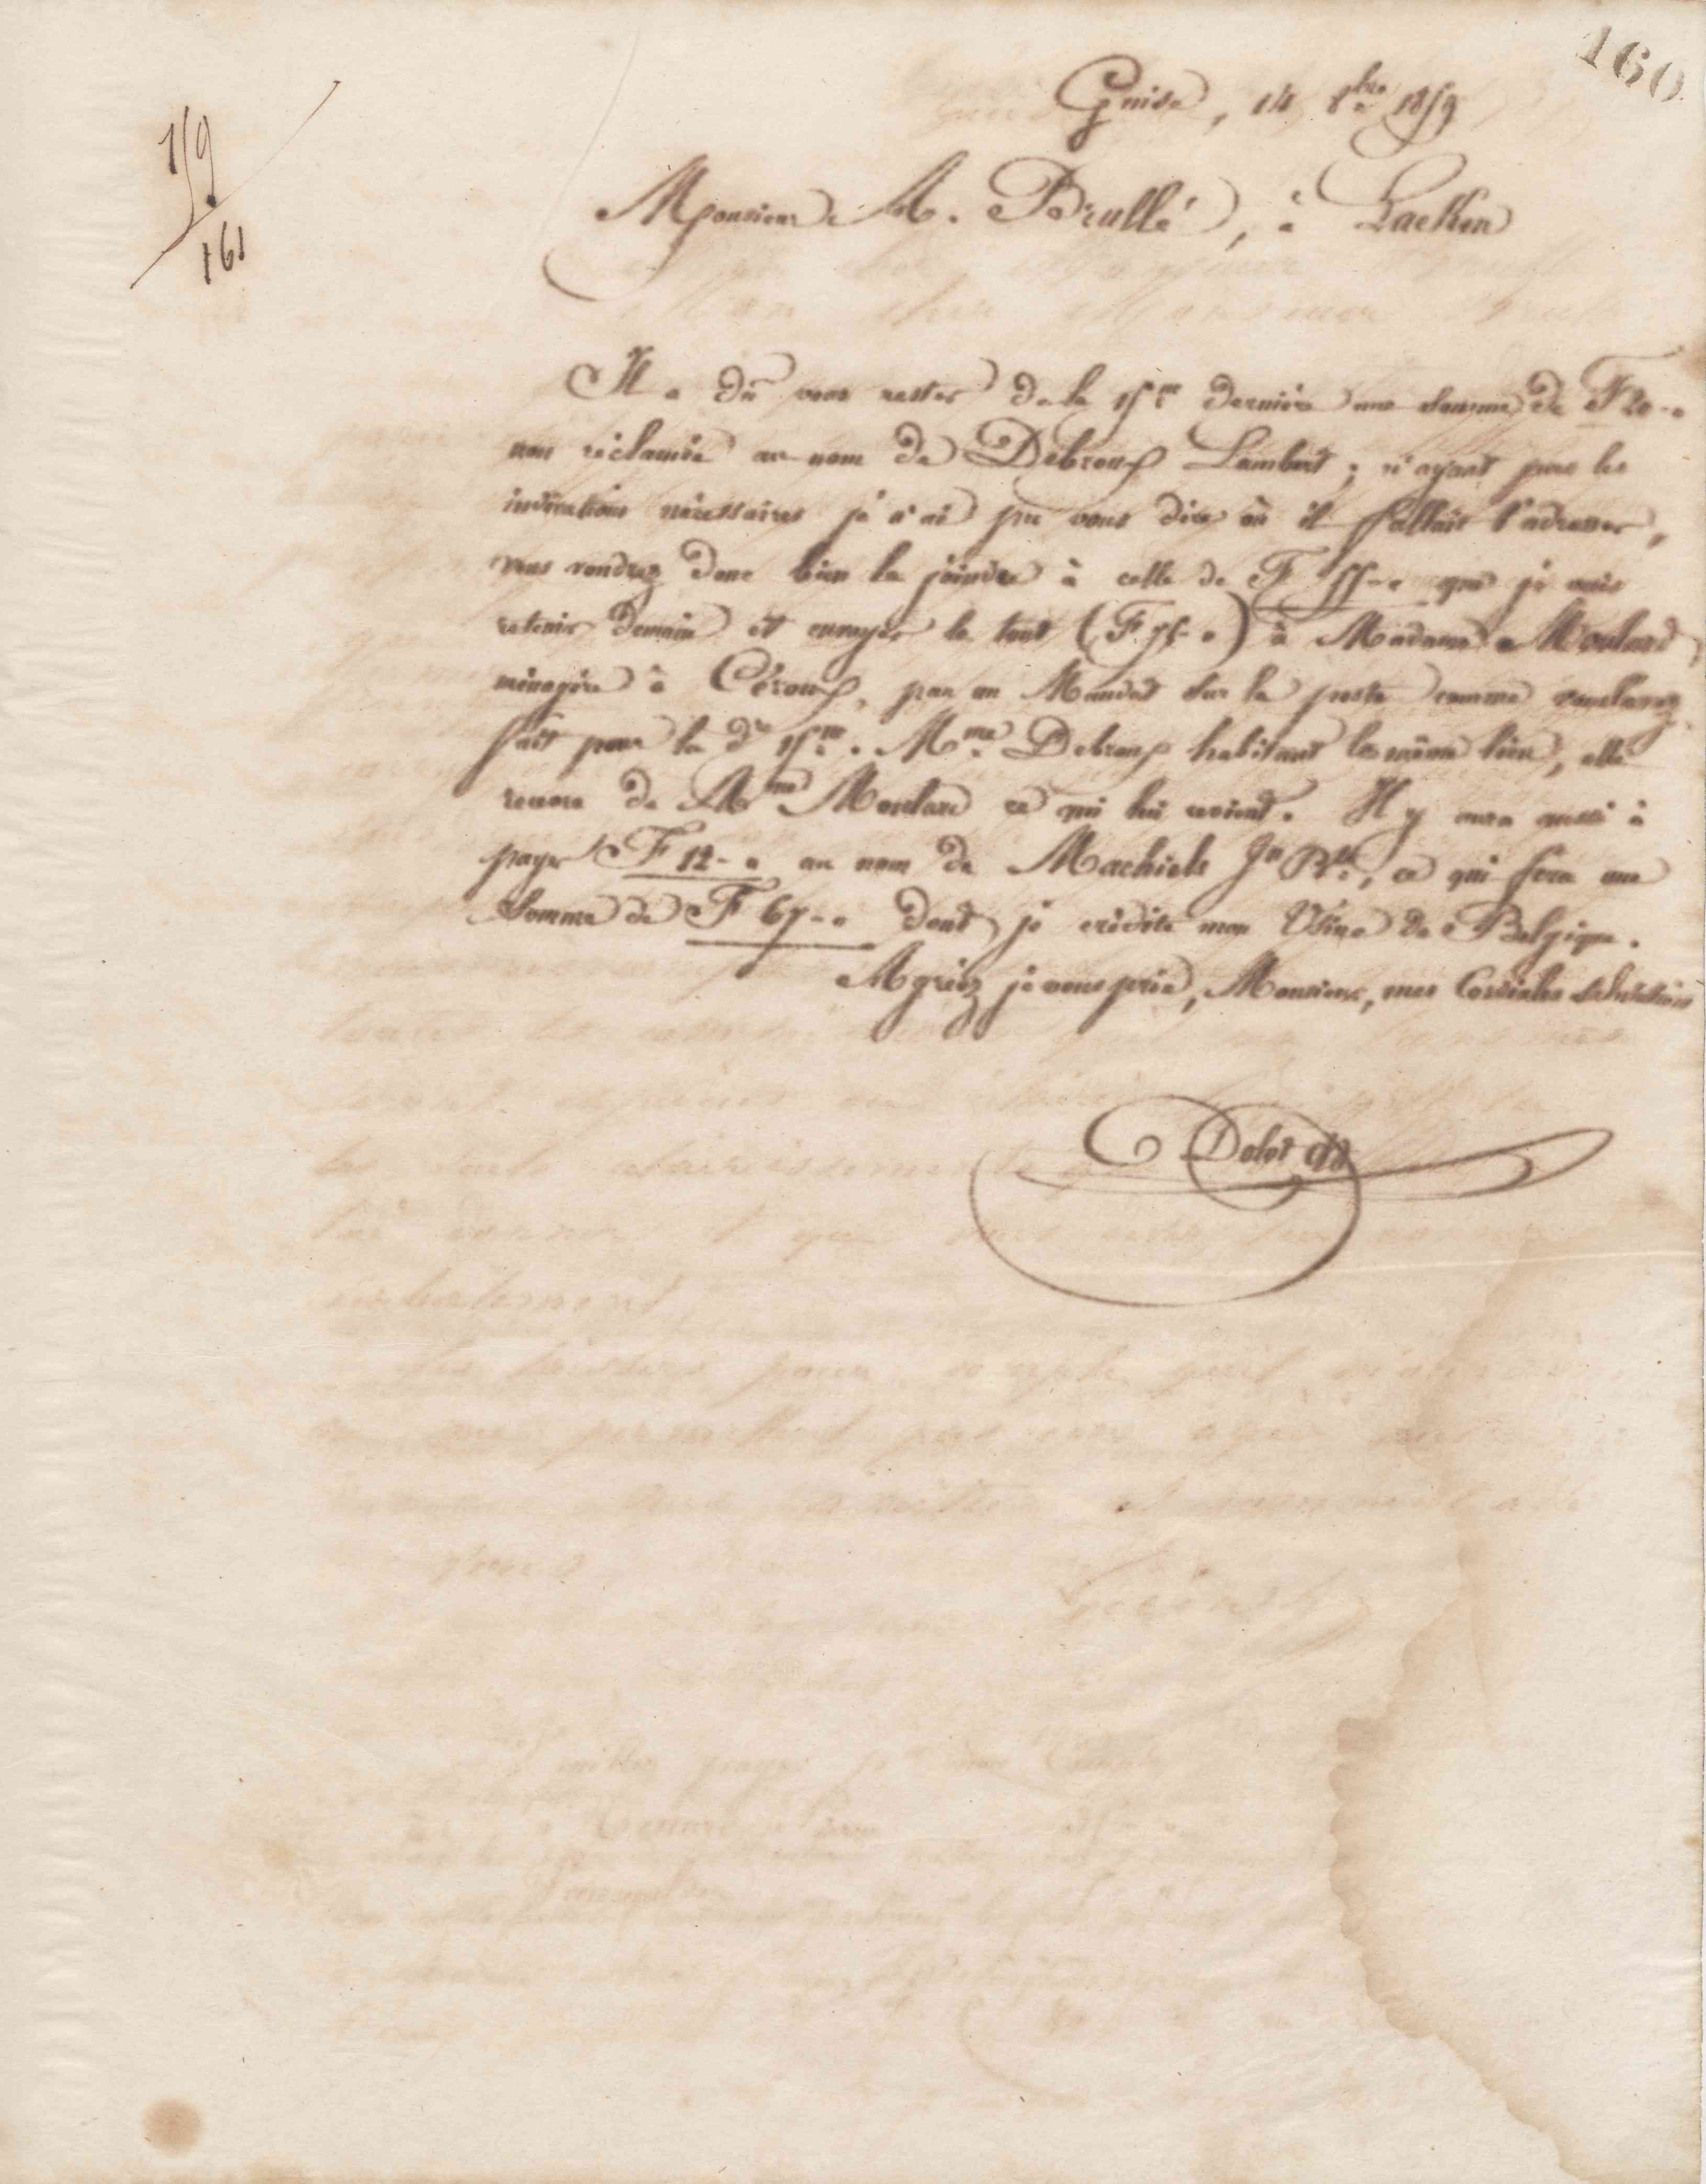 160
159
161
Guise, 14 8bre 1859
Monsieur A. Brullé, à Laeken
Il a dû vous rester de la 15ne dernière une somme de F 20-"
non réclamée au nom de Debroux Lambert ; n'ayant pas les
indications nécessaires je n'ai pu vous dire où il fallait l'adresser,
vous voudrez donc bien la joindre à celle de F 55-" que je vais
retenir demain et envoyer le tout (F 75-") à Madame Moulard,
ménagère à Céroux, par un Mandat sur la poste comme vous l'avez
fait pour la dre 15ne. Mme Debroux habitant le même lieu, elle
recevra de Mme Moulard ce qui lui revient. Il y aura aussi à
payer F 12-" au nom de Machiels Jn Bte, ce qui fera une
Somme de F 67-" dont je crédite mon Usine de Belgique.
Agréez je vous prie, Monsieur, mes Cordiales salutations